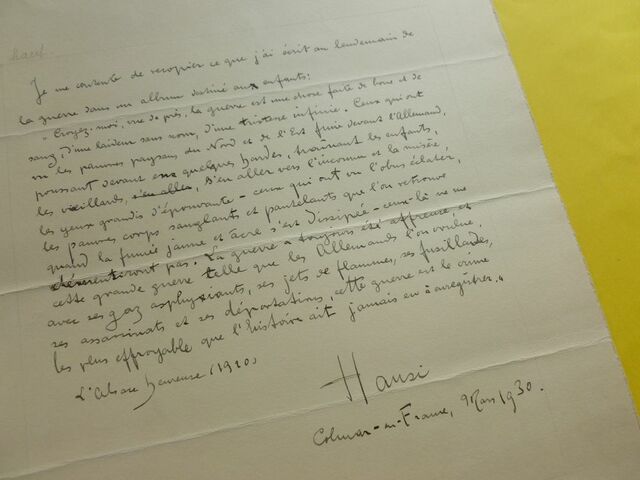 hauf.
Je me contente de recopier ce que j'ai écrit au lendemain de
la guerre dans un album destiné aux enfants:
" Croyez-moi, vue de près, la guerre est une chose faite de boue et de
sang, d'une laideur sans nom, d'une tristesse infinie. Ceux qui ont
vu les pauvres paysans du Nord et de l'Est fuir devant l'Allemand,
poussant devant eux quelques hardes, traînant les enfants,
les vieillards, s'en aller, s'en aller vers l'inconnu et la misère,
les yeux grandis d'épouvante - ceux qui ont vu l'obus éclater,
les pauvres corps sanglants et pantelants que l'on retrouve
quand la fumée jaune et âcre s'est dissipée - ceux-là ne me
démentiront pas. La guerre a toujours été affreuse, et
cette grande guerre telle que les Allemands l'ont voulue,
avec ses gaz asphyxiants, ses jets de flammes, ses fusillades,
ses assassinats et ses déportations, cette guerre est le crime
les plus effroyable que l'histoire ait jamais eu à enregistrer."
L'Alsace heureuse (1920)
Hansi
Colmar-en-France, 9 Mars 1930.